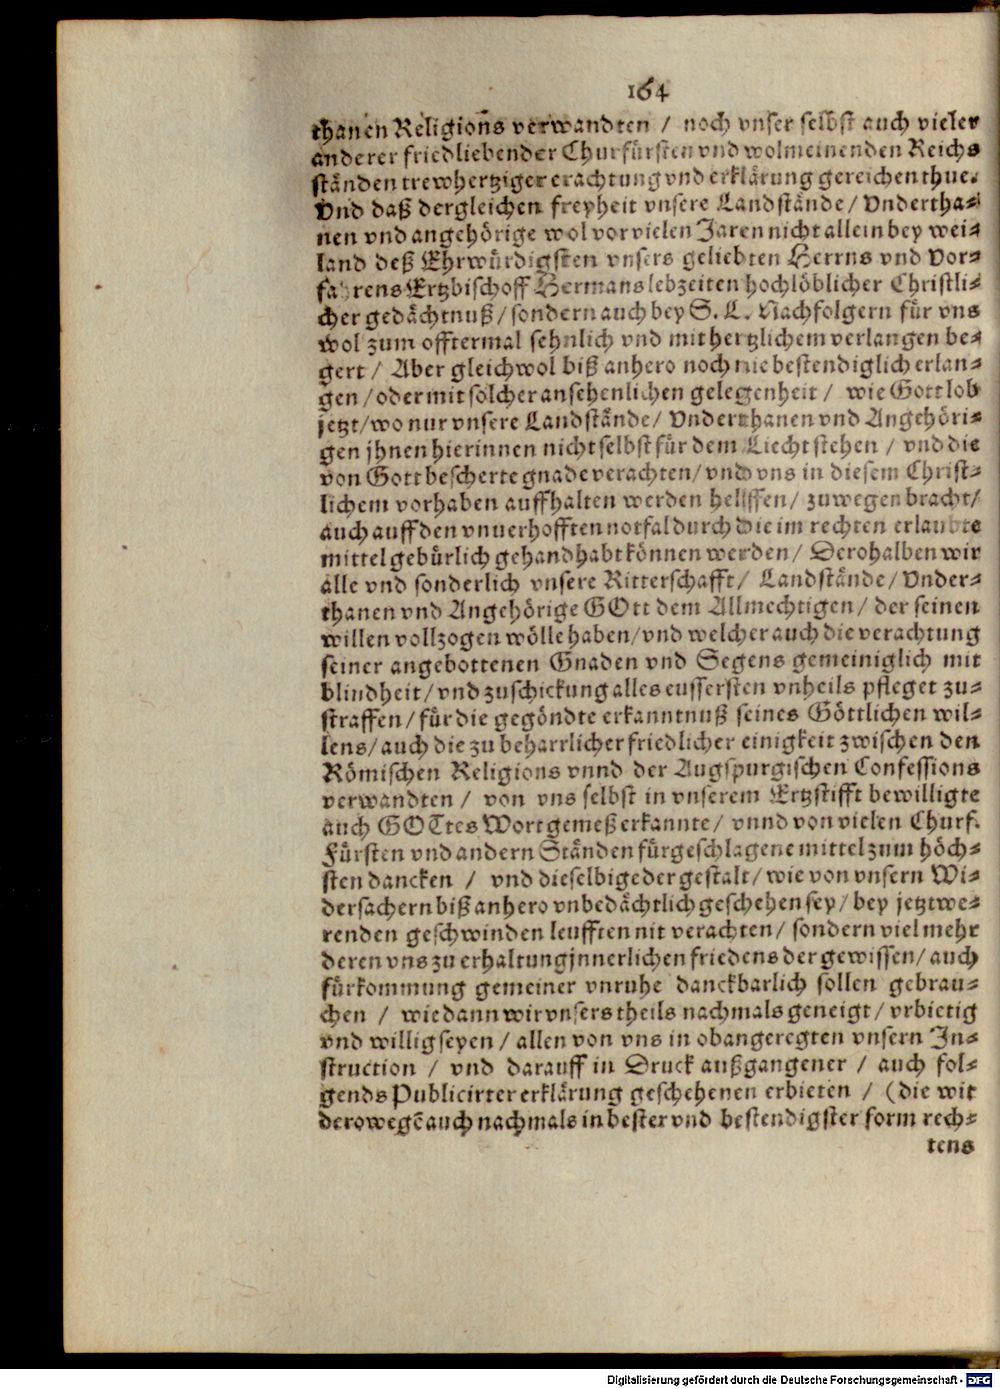 164
thanen Religions verwandten / noch vnser selbst auch vieler
anderer friedliebender Churfürsten vnd wolmeinenden Reichs
ständen trewhertziger erachtung vnd erklärung gereichen thue.
Vnd daß dergleichen freyheit vnsere Landstände / Vndertha⸗
nen vnd angehörige wol vor vielen Jaren nicht allein bey wei⸗
land deß Ehrwürdigsten vnsers geliebten Herrns vnd Vor⸗
fahrens Ertzbischoff Hermans lebzeiten hochlöblicher Christli⸗
cher gedächtnuß / sondern auch bey S. L. Nachfolgern für vns
wol zum offtermal sehnlich vnd mit hertzlichem verlangen be⸗
gert / Aber gleichwol biß anhero noch nie bestendiglich erlan⸗
gen / oder mit solcher ansehenlichen gelegenheit / wie Gott lob
jetzt / wo nur vnsere Landstände / Vnderthanen vnd Angehöri⸗
gen jhnen hierinnen nicht selbst für dem Liecht stehen / vnd die
von Gott bescherte gnade verachten / vnd vns in diesem Christ⸗
lichem vorhaben auffhalten werden helffen / zuwegen bracht /
auch auff den vnuerhofften notfal durch die im rechten erlaubte
mittel gebürlich gehandhabt können werden / Derohalben wir
alle vnd sonderlich vnsere Ritterschafft / Landstände / Vnder⸗
thanen vnd Angehörige GOtt dem Allmechtigen / der seinen
willen vollzogen wölle haben / vnd welcher auch die verachtung
seiner angebottenen Gnaden vnd Segens gemeiniglich mit
blindheit / vnd zuschickung alles eussersten vnheils pfleget zu⸗
straffen / für die gegöndte erkanntnuß seines Göttlichen wil⸗
lens / auch die zu beharrlicher friedlicher einigkeit zwischen den
Römischen Religions vnnd der Augspurgischen Confessions
verwandten / von vns selbst in vnserem Ertzstifft bewilligte
auch GOTtes Wort gemeß erkannte / vnnd von vielen Churf.
Fürsten vnd andern Ständen fürgeschlagene mittel zum höch⸗
sten dancken / vnd dieselbige der gestalt / wie von vnsern Wi⸗
dersachern biß anhero vnbedächtlich geschehen sey / bey jetztwe⸗
renden geschwinden leufften nit verachten / sondern viel mehr
deren vns zu erhaltung jnnerlichen friedens der gewissen / auch
fürkommung gemeiner vnruhe danckbarlich sollen gebrau⸗
chen / wie dann wir vnsers theils nachmals geneigt / vrbietig
vnd willig seyen / allen von vns in obangeregten vnsern In⸗
struction / vnd darauff in Druck außgangener / auch fol⸗
gends Publicirter erklärung geschehenen erbieten / (die wir
derowegē auch nachmals in bester vnd bestendigster form rech⸗
tens
Digitalisierung gefördert durch die Deutsche Forschungsgemeinschaft - DFG